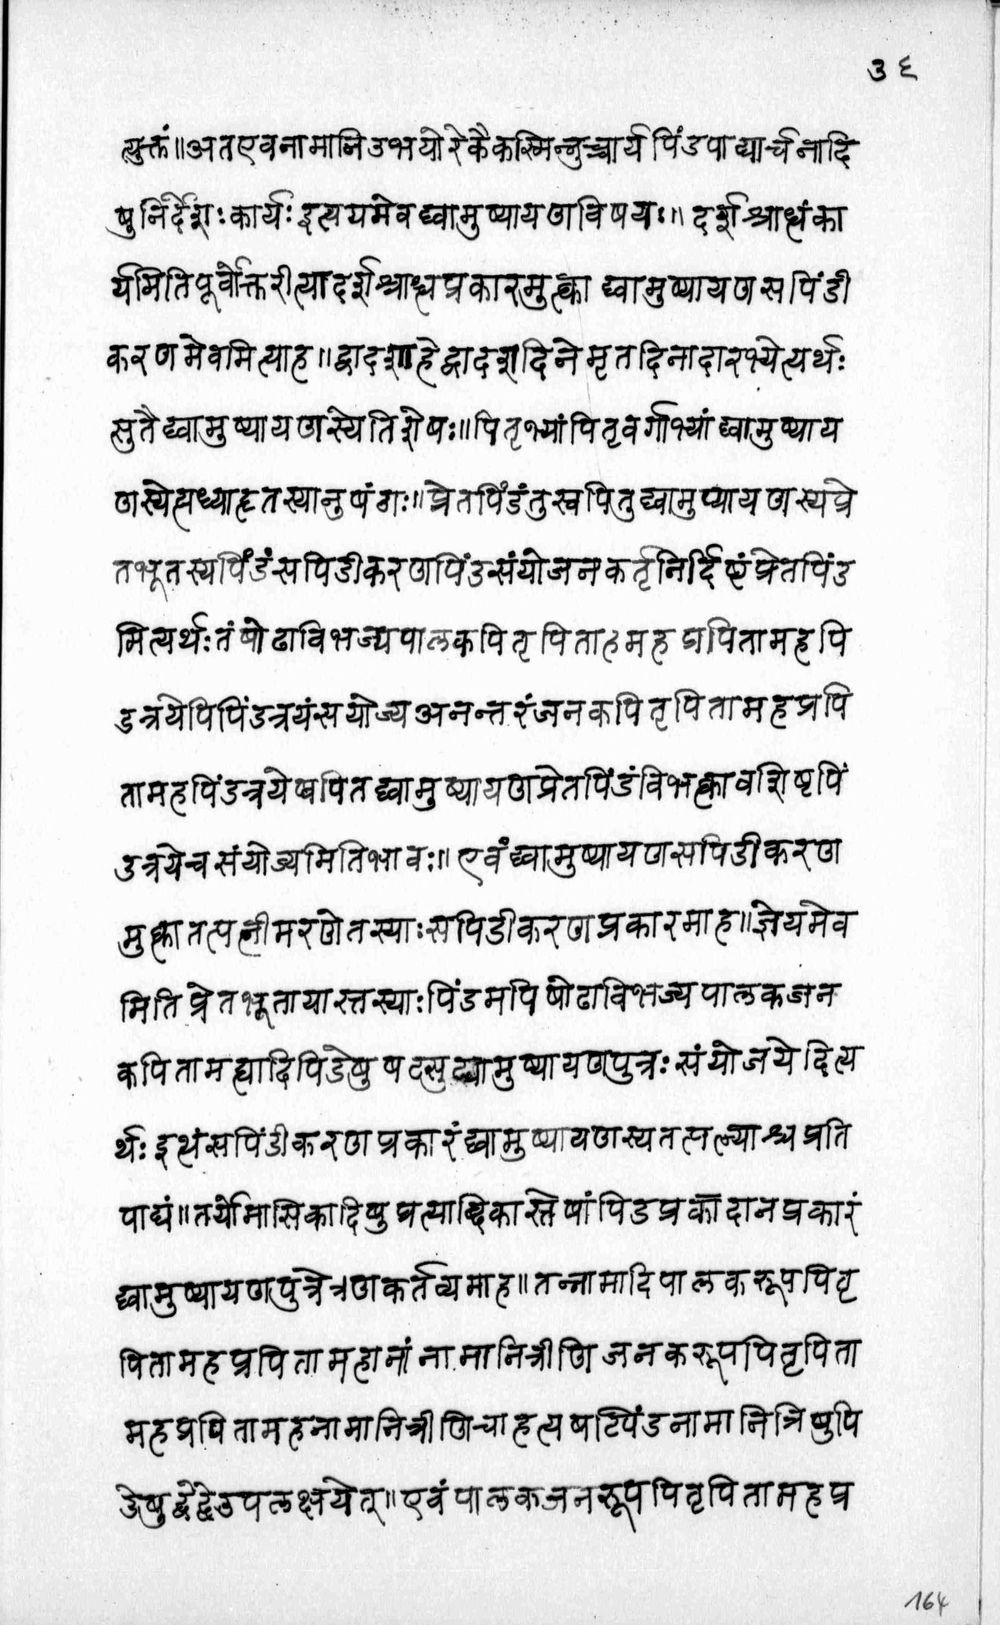 ३६
त्युक्तं॥अतएवनामानिउभयोरेकैकस्मिन्नुच्चार्यपिंडपाद्यार्चनादि
षुनिर्देशःकार्यःइत्ययमेवद्व्यामुष्यायणविषयः॥दर्शश्राद्धंका
र्यमितिपूर्वोक्तरीत्यादर्शश्राद्धप्रकारमुत्क्वा द्व्यामुष्यायणसपिंडी
करणमेवमित्याह॥द्वादशाहेद्वादशदिनेमृतदिनादारभ्येत्यर्थः
सुतैद्व्यामुष्यायणस्येतिशेषः॥पितृभ्यांपितृवर्गाभ्यांद्व्यामुष्याय
णस्येत्यध्याहृतस्यानुषंगः॥प्रेतपिंडंतुस्वपितुद्व्यामुष्यायणस्यप्रे
तभूतस्यपिंडंसपिडीकरणपिंउसंयोजनकर्तृनिर्दिष्टंप्रेतपिंउ
मित्यर्थःतंषोढाविभज्यपालकपितृपिताहमहप्रपितामहपि
डत्रयेपिपिंडत्रयंसयोज्यअनन्तरंजनकपितृपितामहप्रपि
तामहपिंडत्रयेष्वपितद्व्यामुष्यायणप्रेतपिंडंविभक्तावशिष्टपिं
उत्रयेचसंयोज्यमितिभावः॥एवंद्व्यामुष्यायणसपिडीकरण
मुत्क्वातत्पत्नीमरणेतस्याःसपिडीकरणप्रकारमाह॥ज्ञेयमेव
मितिप्रेतभूतायास्तस्याःपिंडमपिषोढाविभज्यपालकजन
कपितामह्यादिपिडेषुषट्सुद्व्यामुष्यायणपुत्रःसंयोजयेदित्य
र्थःइत्थंसपिंडीकरणप्रकारंद्व्यामुष्यायणस्यतत्पत्न्याश्चप्रति
पाद्यं॥तयोर्मासिकादिषुप्रत्याब्दिकास्तेषांपिडप्रकादानप्रकारं
द्व्यामुष्यायणपुत्रेत्रणकर्तव्यमाह॥तन्नामादिपालकरूपपितृ
पितामहप्रपितामहानांनामानित्रीणिजनकरूपपितृपिता
महप्रपितामहनामानित्रीणिचाहत्यषट्पिंडनामानित्रिषुपि
डेषुद्वेद्वेउपलक्षयेत्॥एवंपालकजनरूपपितृपितामहप्र
164